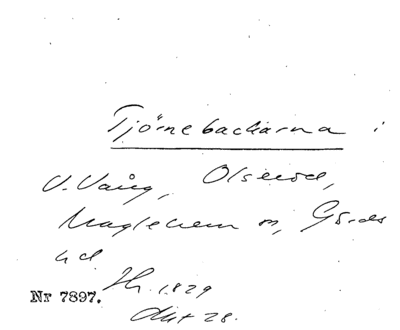 Tjörnebackarna i
V. Vång, Olseröd,
Maglehem sn, Gärds
hd
Nr 7897. Hr. 1829
Akt 28.